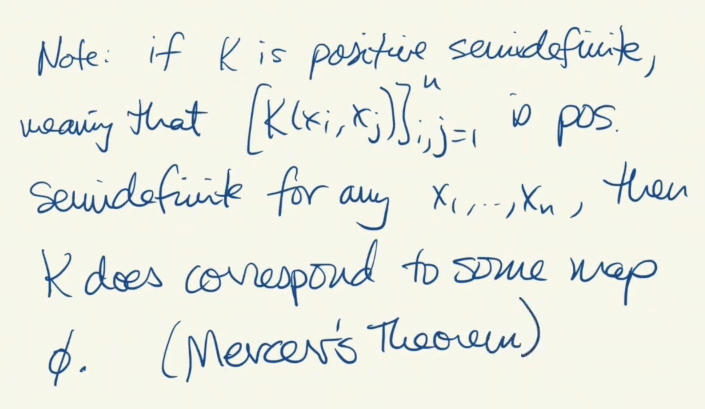 Note: if K is positive semidefinite,
meaning that [K(xi, xj)]ⁿi,j=1 is pos.
semidefinite for any x1,..,xn, then
K does correspond to some map
ϕ. (Mercer's Theorem)